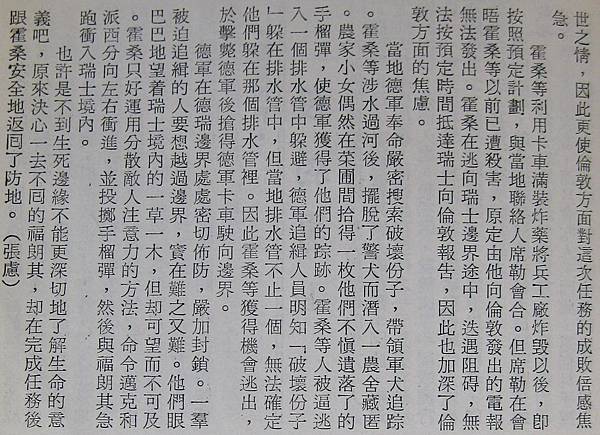 世之情，因此更使倫敦方面對這次任務的成敗倍感焦
急。
霍桑等利用卡車滿裝炸藥將兵工廠炸毀以後，卽
按照預定計劃，與當地聯絡人席勒會合。但席勒在會
晤霍桑等以前已遭殺害，原定由他向倫敦發出的電報
無法發出。霍桑在逃向瑞士邊界途中，迭遇阻碍，無
法按預定時間抵達瑞士向倫敦報告，因此也加深了倫
敦方面的焦慮。
當地德軍奉命嚴密搜索破壞份子，帶領軍犬追踪
。霍桑等涉水過河後，擺脫了警犬而潛入一農舍藏匿
。農家小女偶然在菜圃間拾得一枚他們不慎遺落了的
手榴彈，使德軍獲得了他們的踪跡。霍桑等人被逼逃
入一個排水管中躲避，德軍追緝人員明知「破壞份子
」躲在排水管中，但當地排水管不止一個，無法確定
他們躲在那個排水管裡。因此霍桑等獲得機會逃出，
於擊斃德軍後搶得德軍卡車駛向邊界。
德軍在德瑞邊界處處密切佈防，嚴加封鎖。一羣
被迫追緝的人要想越過邊界，實在難之又難。他們眼
巴巴地望着瑞士境內的一草一木，但却可望而不可及
。霍桑只好運用分散敵人注意力的方法，命令邁克和
派西分向左右衝進，並投擲手榴彈，然後與福朗其急
跑衝入瑞士境內。
也許是不到生死邊緣不能更深切地了解生命的意
義吧，原來決心一去不囘的福朗其，却在完成任務後
跟霍桑安全地返囘了防地。（張慮）